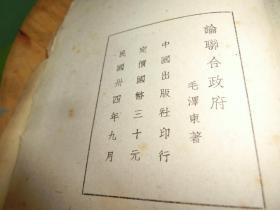 論聯合政府
毛澤東著
中國出版社印行
定價國幣三十元
民國卅四年九月